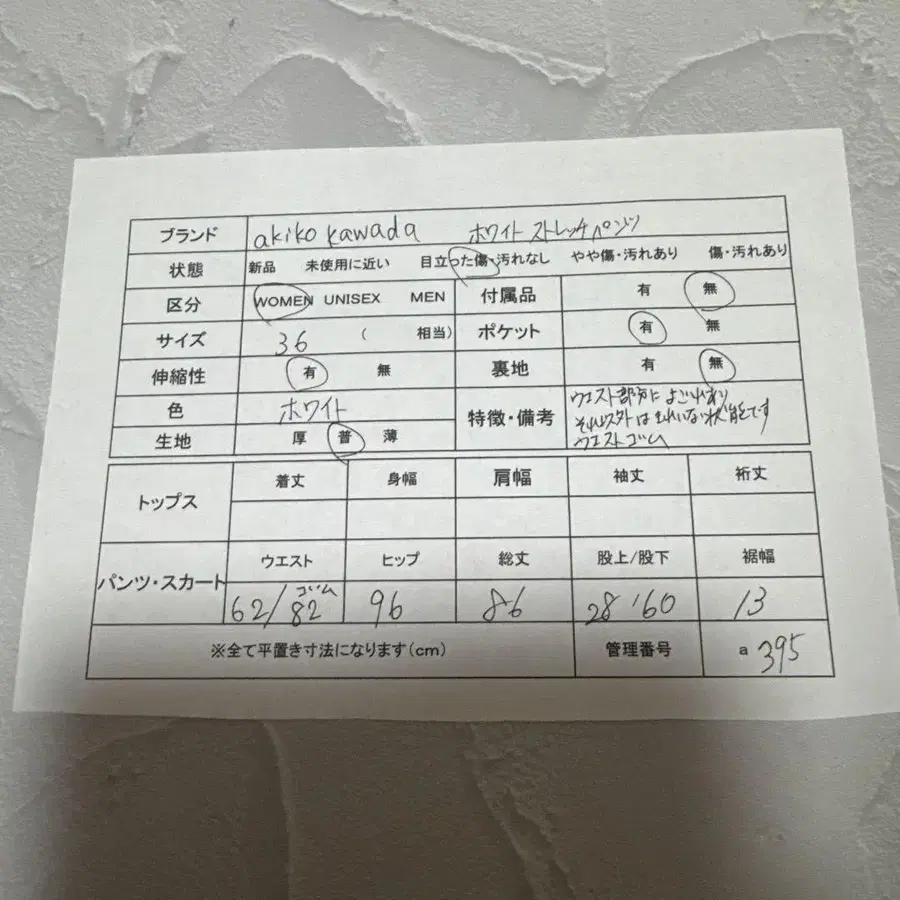 ブランド akiko kawada ホワイト ストレッチパンツ
状態 新品 未使用に近い 目立った傷・汚れなし やや傷・汚れあり 傷・汚れあり
区分 WOMEN UNISEX MEN 付属品 有 無
サイズ 36 ( 相当) ポケット 有 無
伸縮性 有 無 裏地 有 無
色 ホワイト 特徴・備考 ウエスト部分によごれあり
それ以外はきれいな状態です
ウエストゴム
生地 厚 普 薄
トップス 着丈 身幅 肩幅 袖丈 裄丈
パンツ・スカート ウエスト ヒップ 総丈 股上/股下 裾幅
62/82 ゴム 96 86 28 60 13
※全て平置き寸法になります(cm) 管理番号 a 395